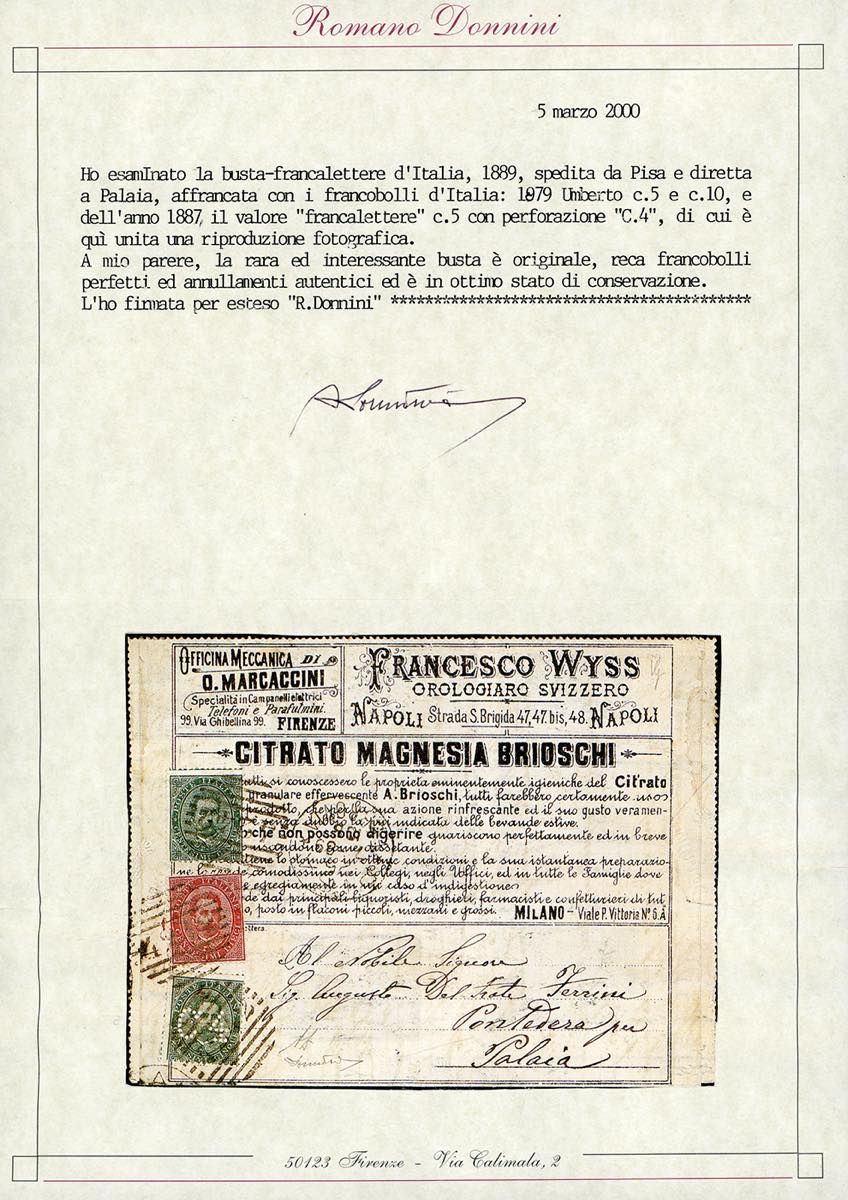 Romano Donnini
5 marzo 2000
Ho esamInato la busta-francalettere d'Italia, 1889, spedita da Pisa e diretta
a Palaia, affrancata con i francobolli d'Italia: 1879 Umberto c.5 e c.10, e
dell'anno 1887, il valore "francalettere" c.5 con perforazione "C.4", di cui è
quì unita una riproduzione fotografica.
A mio parere, la rara ed interessante busta è originale, reca francobolli
perfetti ed annullamenti autentici ed è in ottimo stato di conservazione.
L'ho firmata per esteso "R.Donnini" ******************************************
OFFICINA MECCANICA DI
O. MARCACCINI
Specialità in Campanelli elettrici
Telefoni e Parafulmini.
99. Via Ghibellina 99. FIRENZE
FRANCESCO WYSS
OROLOGIARO SVIZZERO
NAPOLI Strada S. Brigida 47, 47. bis, 48. NAPOLI
CITRATO MAGNESIA BRIOSCHI
si conoscessero le proprietà eminentemente igieniche del Citrato
granulare effervescente A. Brioschi, tutti farebbero certamente uso
prodotto, che per la sua azione rinfrescante ed il suo gusto veramen-
è senza dubbio la più indicata delle bevande estive.
che non possono digerire guariscono perfettamente ed in breve
usandone come dissetante.
tiene lo stomaco in ottime condizioni e la sua istantanea preparazio-
ne la rende comodissimo nei Collegi, negli Uffici, ed in tutte le Famiglie dove
egregiamente in un caso d'indigestione
de dai principali liquoristi, droghieri, farmacisti e confetturieri di tut
o, posto in flaconi piccoli, mezzani e grossi. MILANO - Viale P. Vittoria Nº 6. A
lettera
Al Nobile Signore
Sig. Augusto Del Frate Ferrini
Pontedera per
Palaia
50123 Firenze - Via Calimala, 2